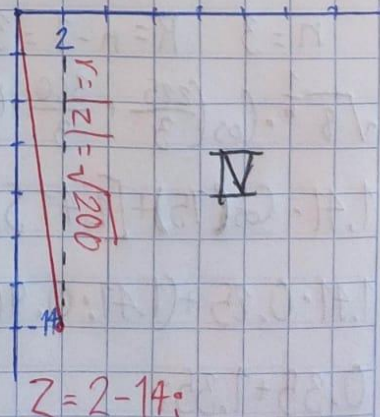 2
r = |z| = √200
IV
-14
z = 2 - 14i